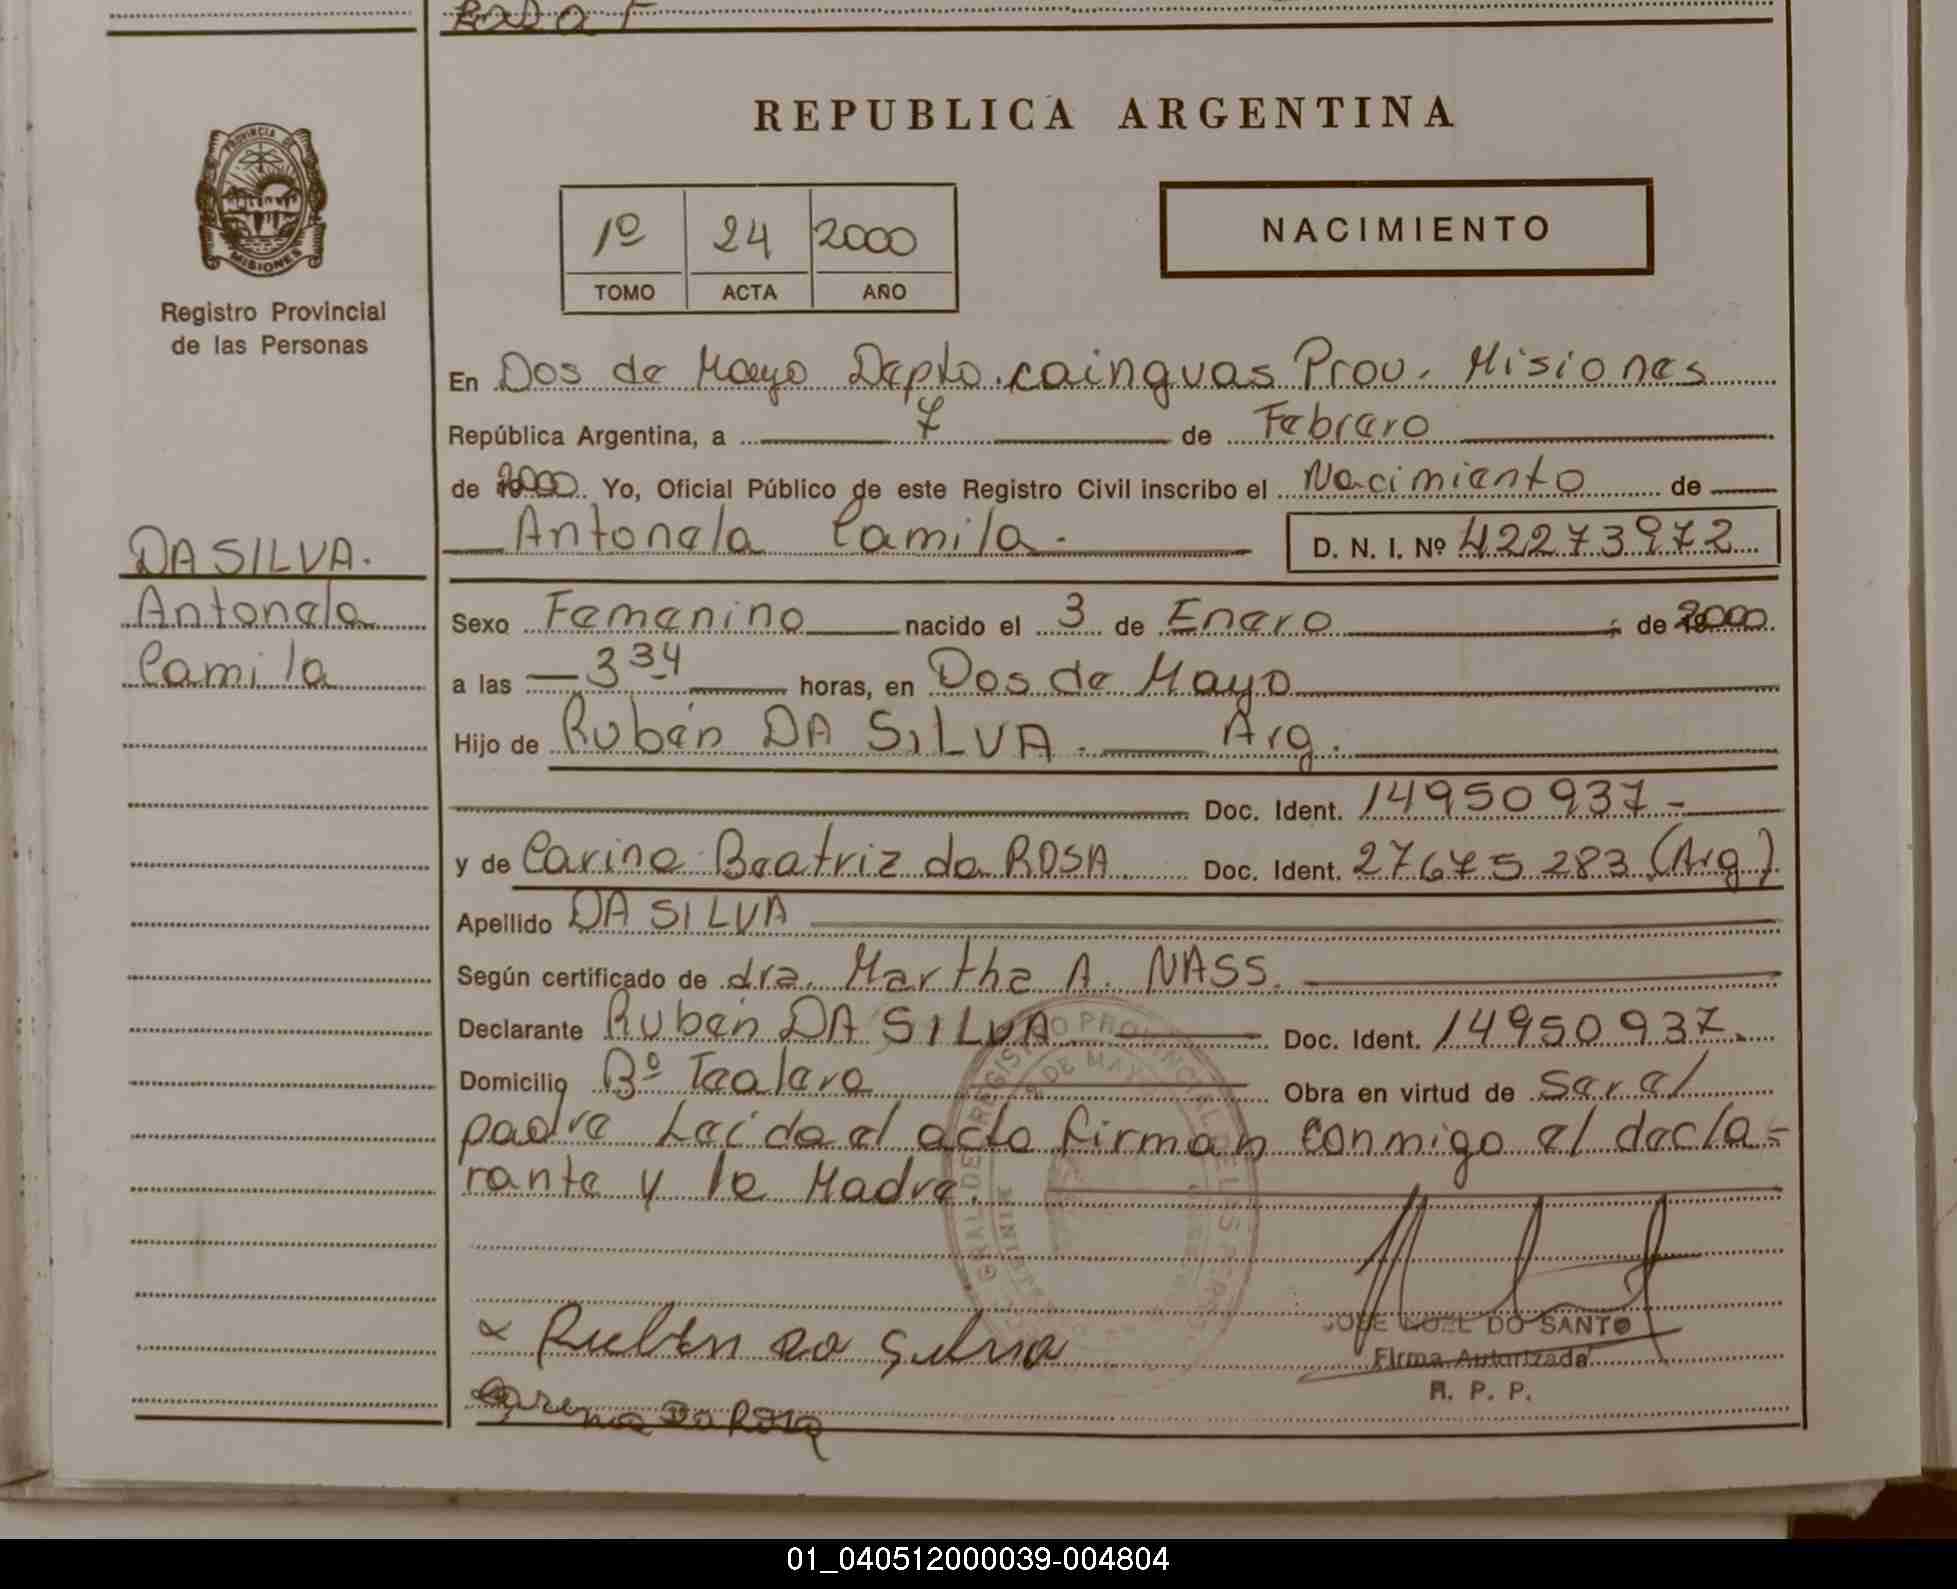 REPUBLICA ARGENTINA
PROVINCIA DE
MISIONES
Registro Provincial
de las Personas
1º 24 2000
TOMO ACTA AÑO
NACIMIENTO
En Dos de Mayo Depto. cainguas Prov. Misiones
República Argentina, a 7 de Febrero
de 2000 Yo, Oficial Público de este Registro Civil inscribo el Nacimiento de
Antonela Camila. D. N. I. Nº 42273972
DA SILVA.
Antonela
Camila
Sexo Femenino nacido el 3 de Enero ; de 2000
a las 3 34 horas, en Dos de Mayo
Hijo de Rubén DA SILVA. Arg.
Doc. Ident. 14950937-
y de Carina Beatriz da ROSA Doc. Ident. 27675283 (Arg)
Apellido DA SILVA
Según certificado de dra. Martha A. NASS.
Declarante Rubén DA SILVA Doc. Ident. 14950937.
Domicilio Bº Tealera Obra en virtud de Ser el
padre Leída el acta firman conmigo el decla-
rante y la Madre.
Ruben da Silva
JOSE NOEL DO SANTO
Firma Autorizada
R. P. P.
Da Rosa
01_040512000039-004804